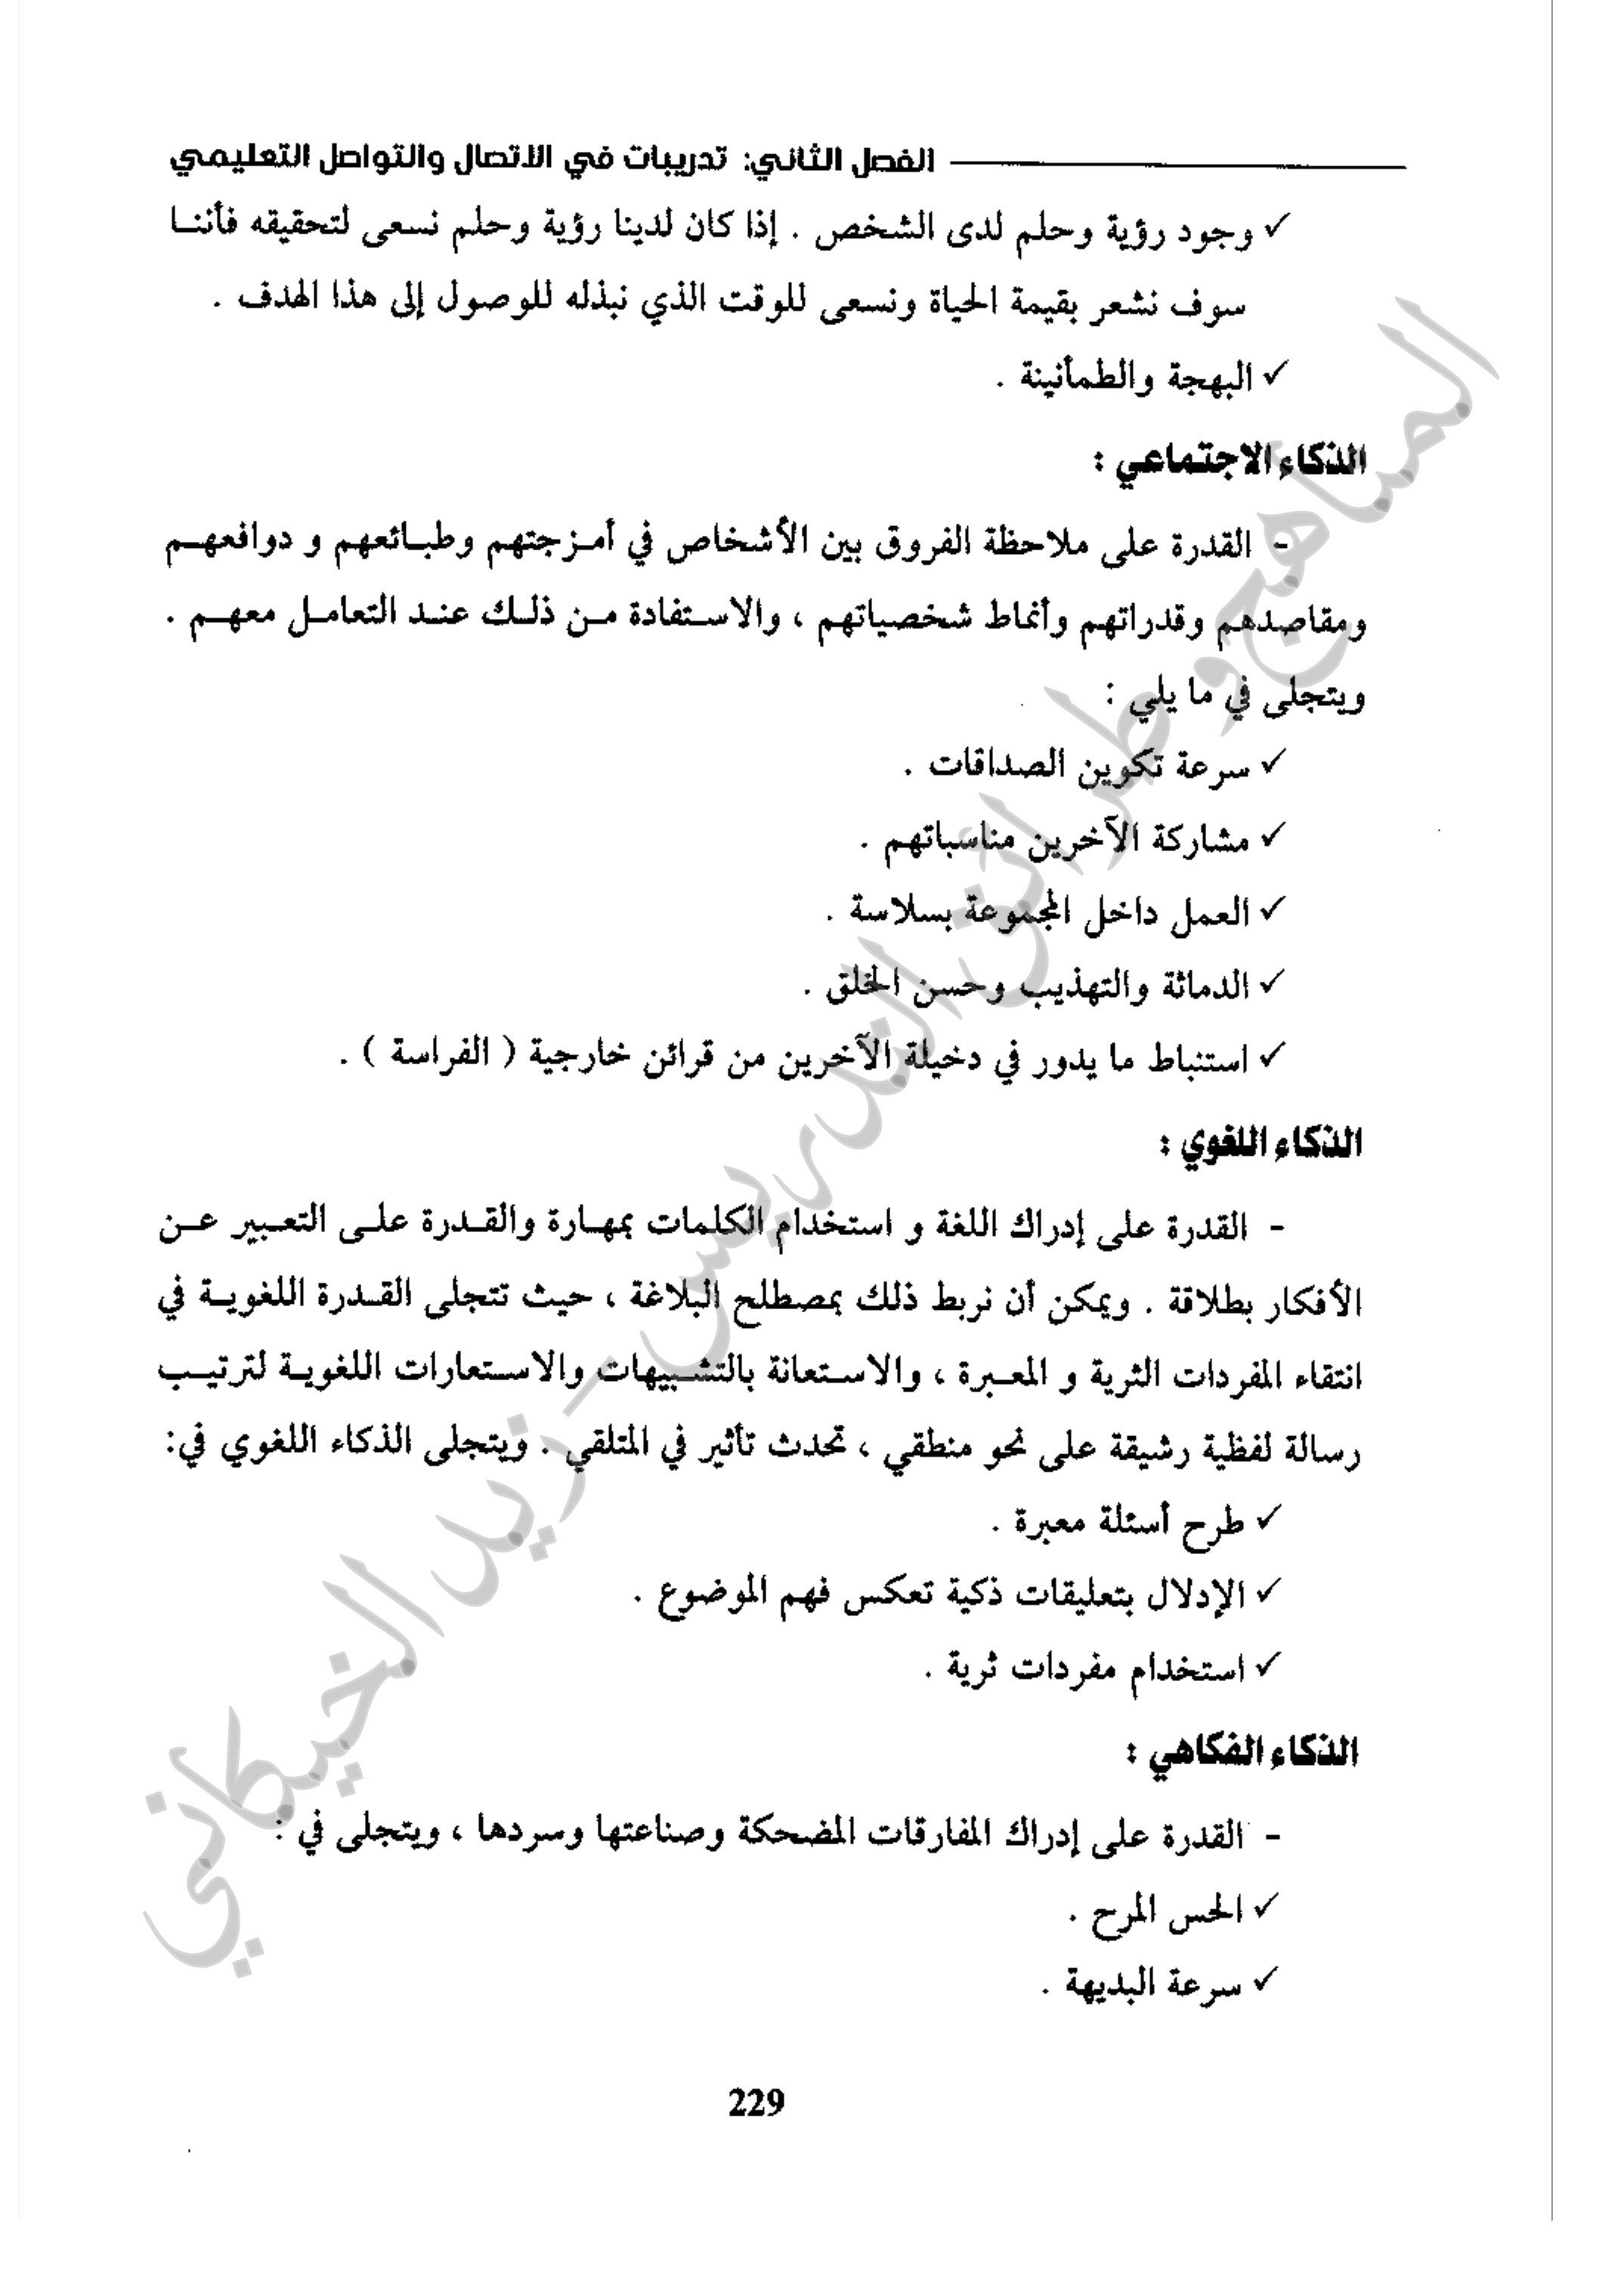 الفصل الثاني: تدريبات في الاتصال والتواصل التعليمي
✓ وجود رؤية وحلم لدى الشخص . إذا كان لدينا رؤية وحلم نسعى لتحقيقه فأننا
سوف نشعر بقيمة الحياة ونسعى للوقت الذي نبذله للوصول إلى هذا الهدف .
✓ البهجة والطمأنينة .
الذكاء الاجتماعي :
- القدرة على ملاحظة الفروق بين الأشخاص في أمزجتهم وطبائعهم و دوافعهم
ومقاصدهم وقدراتهم وأنماط شخصياتهم ، والاستفادة من ذلك عند التعامل معهم .
ويتجلى في ما يلي :
✓ سرعة تكوين الصداقات .
✓ مشاركة الآخرين مناسباتهم .
✓ العمل داخل المجموعة بسلاسة .
✓ الدماثة والتهذيب وحسن الخلق .
✓ استنباط ما يدور في دخيلة الآخرين من قرائن خارجية ( الفراسة ) .
الذكاء اللغوي :
- القدرة على إدراك اللغة و استخدام الكلمات بمهارة والقدرة على التعبير عن
الأفكار بطلاقة . ويمكن أن نربط ذلك بمصطلح البلاغة ، حيث تتجلى القدرة اللغوية في
انتقاء المفردات الثرية و المعبرة ، والاستعانة بالتشبيهات والاستعارات اللغوية لترتيب
رسالة لفظية رشيقة على نحو منطقي ، تحدث تأثير في المتلقي . ويتجلى الذكاء اللغوي في:
✓ طرح أسئلة معبرة .
✓ الإدلال بتعليقات ذكية تعكس فهم الموضوع .
✓ استخدام مفردات ثرية .
الذكاء الفكاهي :
- القدرة على إدراك المفارقات المضحكة وصناعتها وسردها ، ويتجلى في :
✓ الحس المرح .
✓ سرعة البديهة .
229
المناهج وطرائق التدريس - زيد الخيكاني